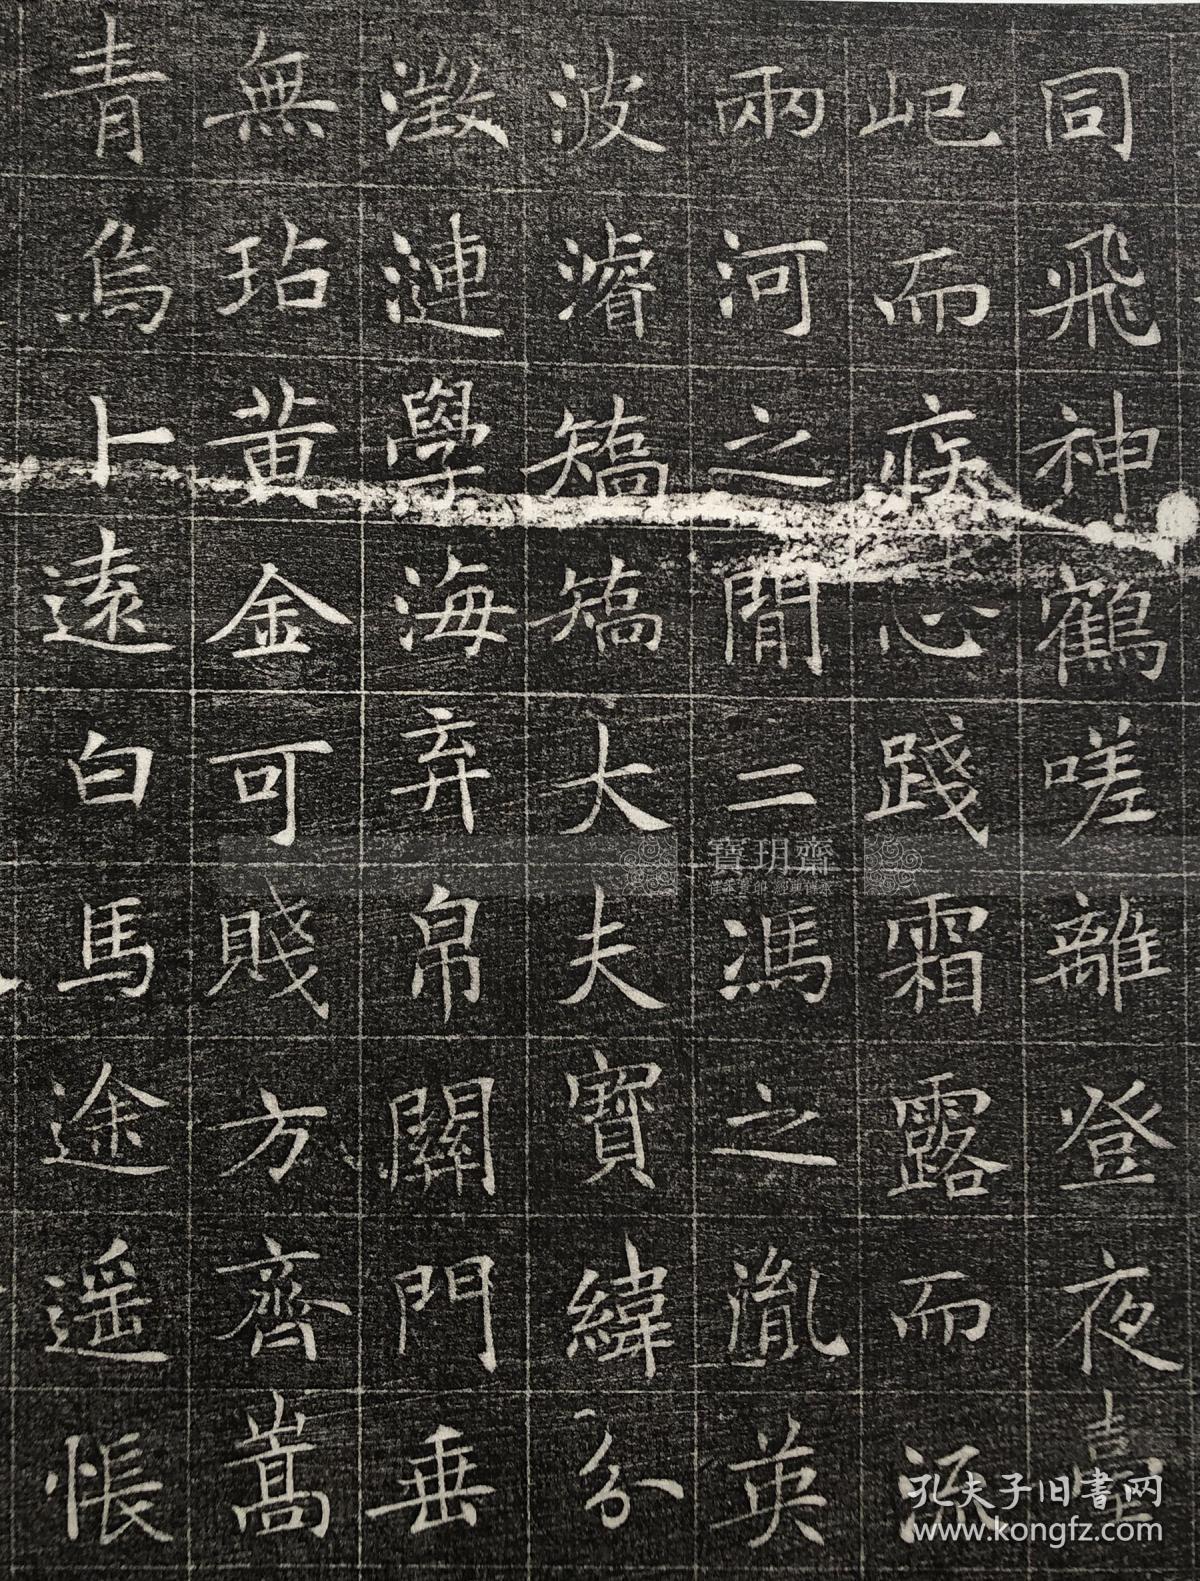 同飛神鶴嗟離登夜臺
屺而疚心踐霜露而
兩河之閒二馮之胤英
波濬矯矯大夫寶緯分
瀓漣學海弃帛關門垂
無玷黃金可賤方齊嵩
青烏卜遠白馬途遥悵
寶玥齋
孔夫子旧书网
www.kongfz.com